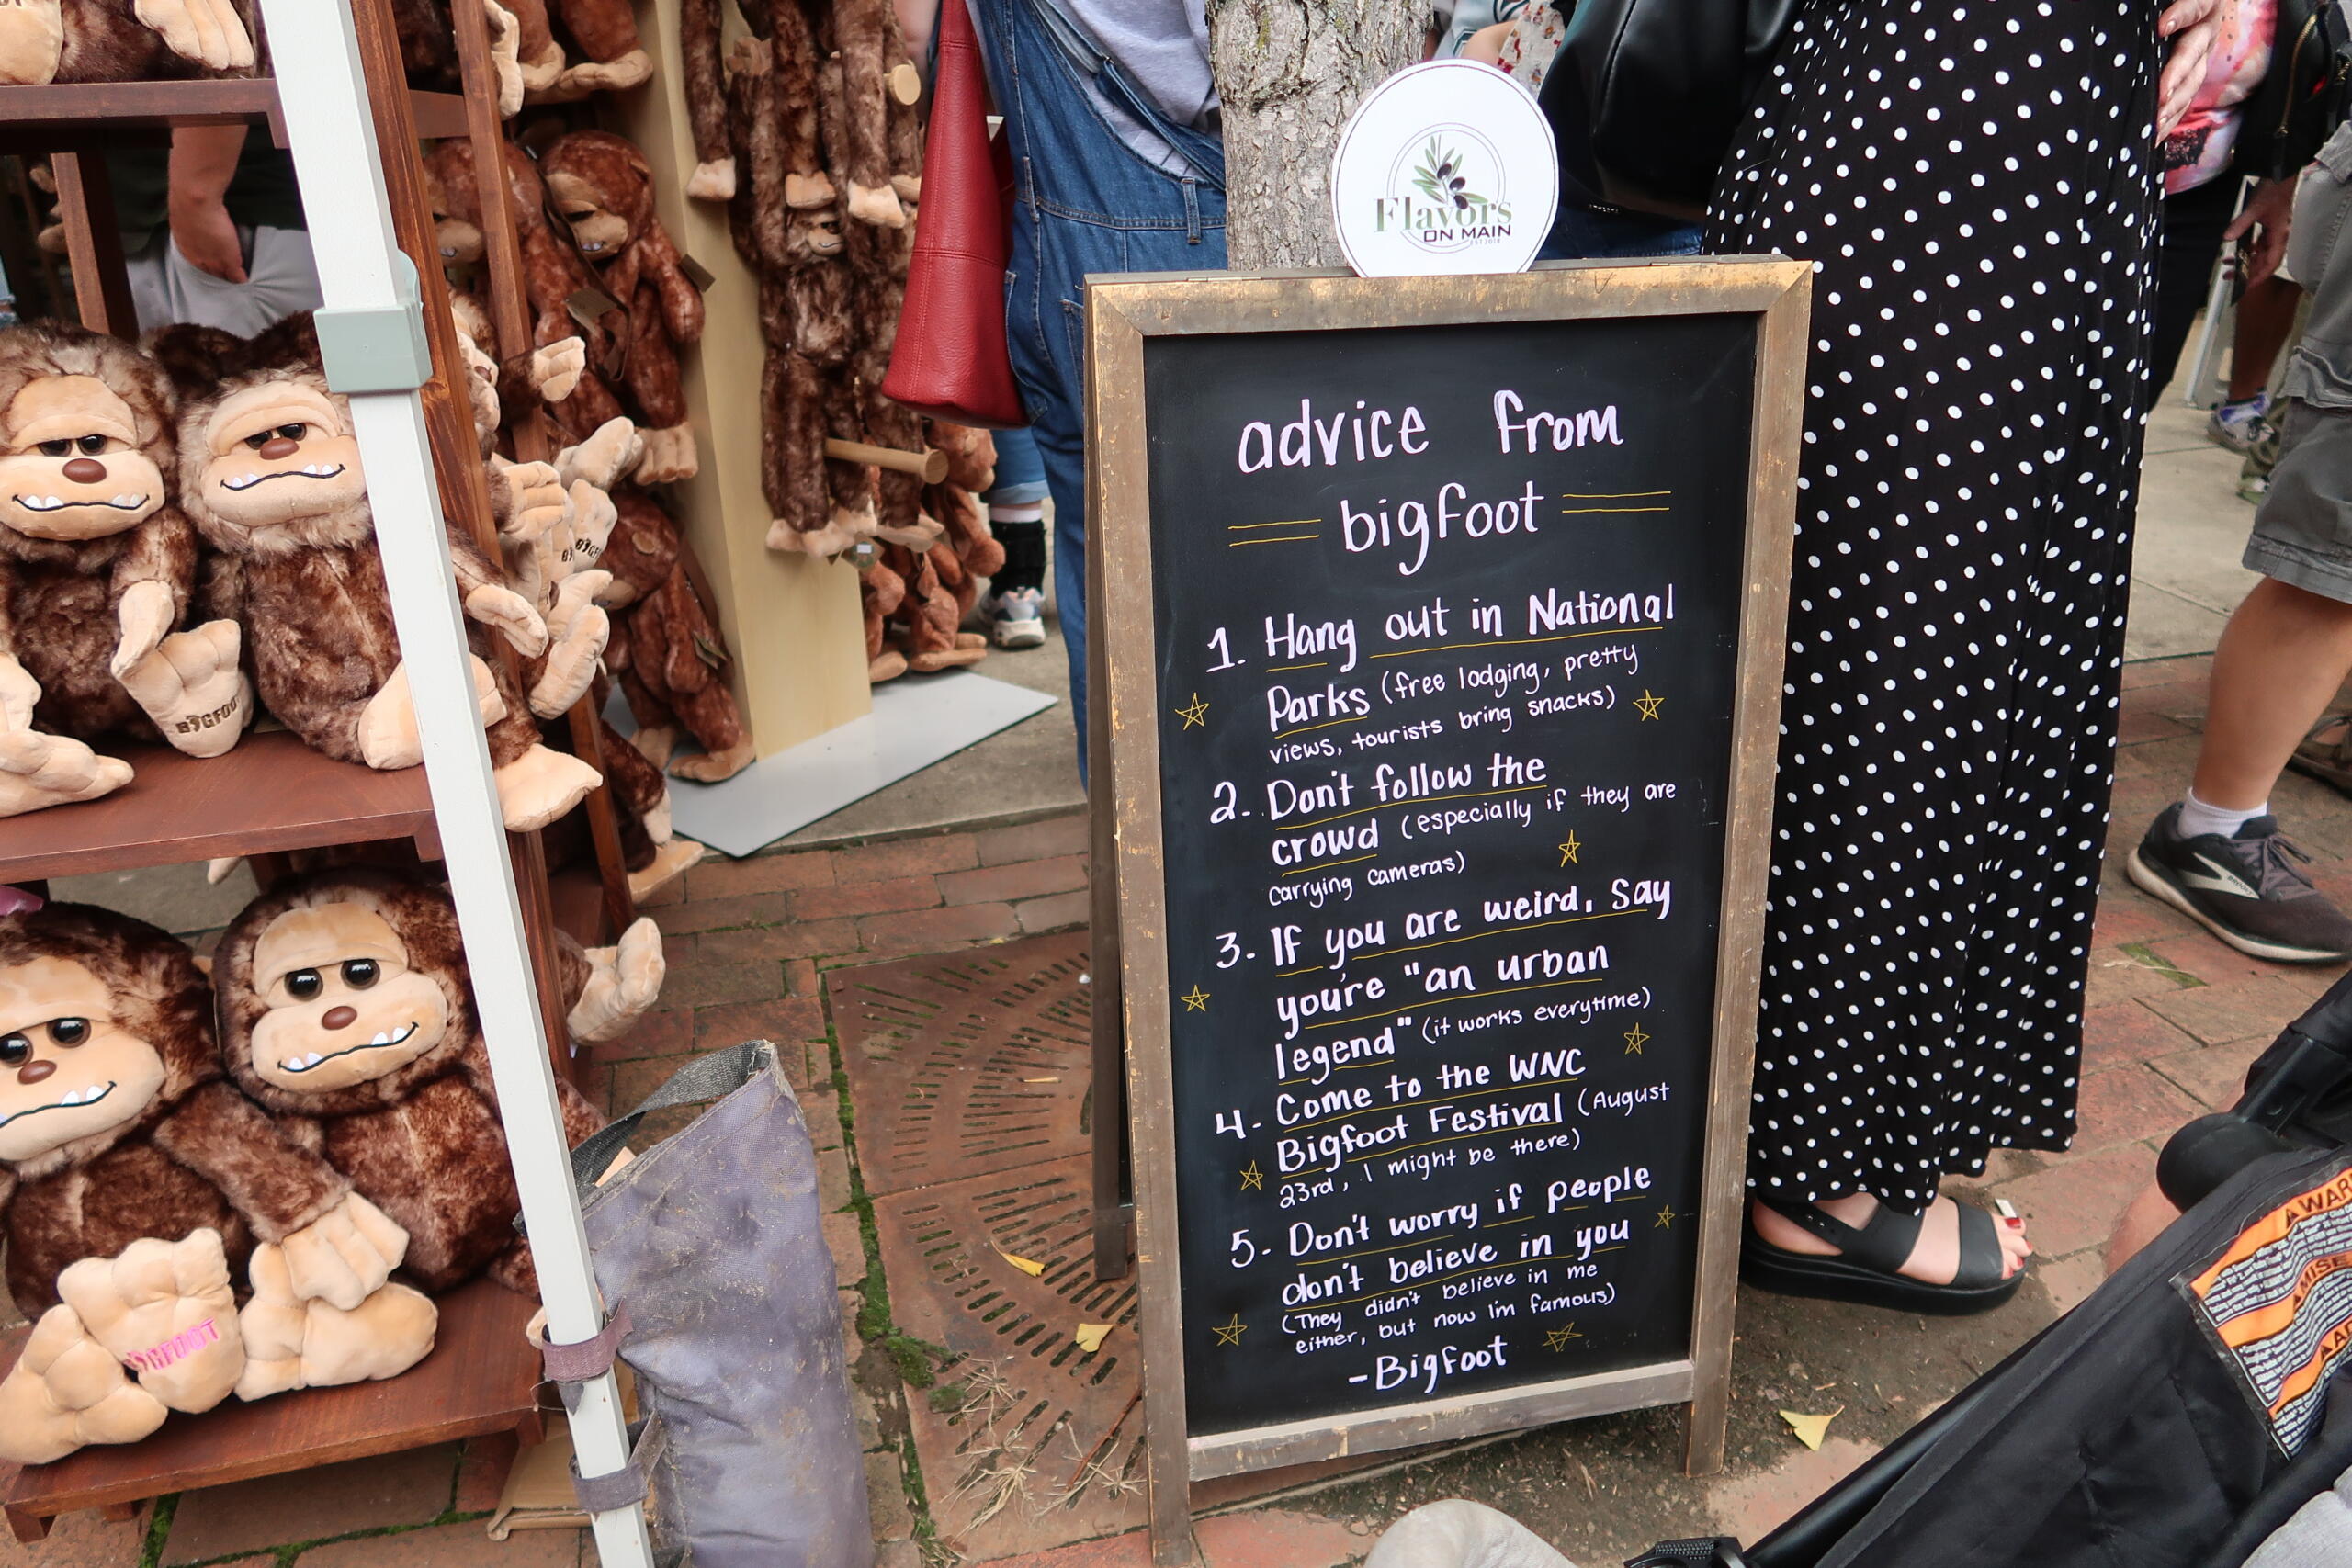 Flavors
ON MAIN
EST 2018
advice from
bigfoot
1. Hang out in National
Parks (free lodging, pretty
views, tourists bring snacks)
2. Don't follow the
crowd (especially if they are
carrying cameras)
3. If you are weird, say
you're "an urban
legend" (it works everytime)
4. Come to the WNC
Bigfoot Festival (August
23rd, I might be there)
5. Don't worry if people
don't believe in you
(They didn't believe in me
either, but now I'm famous)
-Bigfoot
BIGFOOT
BIGFOOT